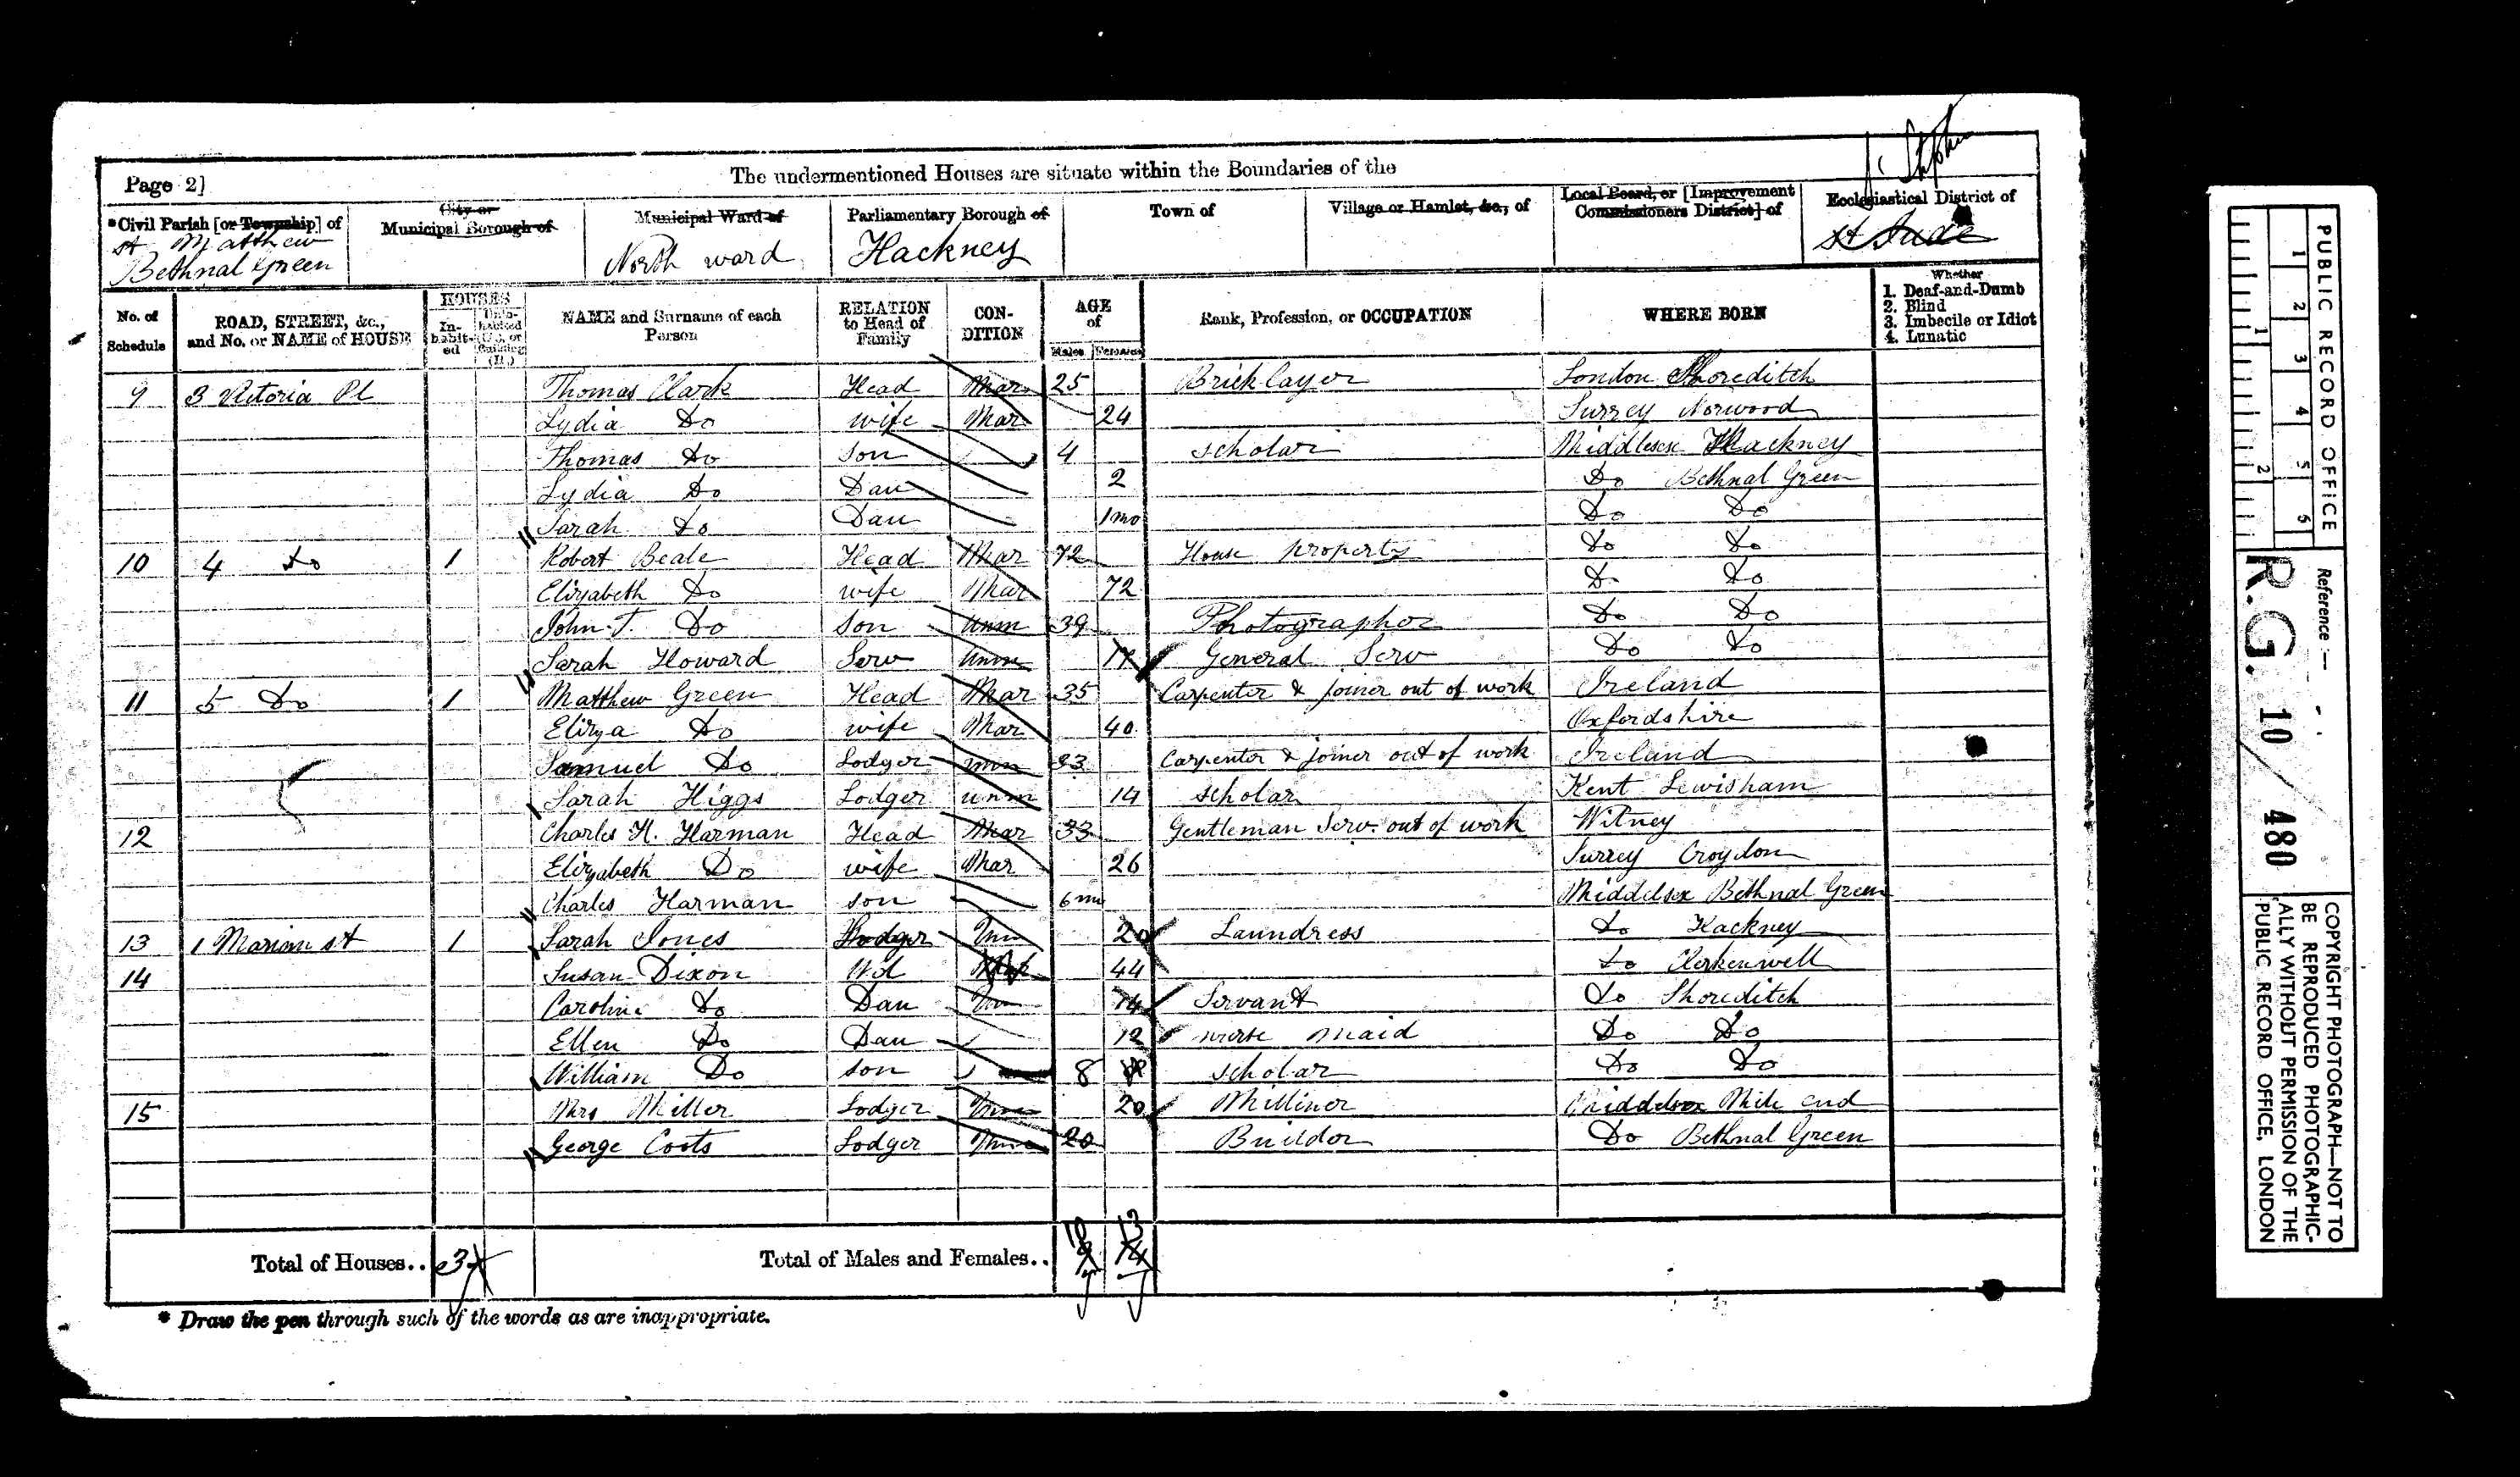 St Stephen
Page 2]
The undermentioned Houses are situate within the Boundaries of the
*Civil Parish [or Township] of
City or Municipal Borough of
Municipal Ward of
Parliamentary Borough of
Town of
Village or Hamlet, &c., of
Local Board, or [Improvement Commissioners District] of
Ecclesiastical District of
St Matthew Bethnal Green
North ward
Hackney
St Jude
No. of Schedule
ROAD, STREET, &c., and No. or NAME of HOUSE
HOUSES
Inhabited
Uninhabited (U.), or Building (B.)
NAME and Surname of each Person
RELATION to Head of Family
CONDITION
AGE of
Males
Females
Rank, Profession, or OCCUPATION
WHERE BORN
Whether
1. Deaf-and-Dumb
2. Blind
3. Imbecile or Idiot
4. Lunatic
9 3 Victoria Pl Thomas Clark Head Mar 25 Bricklayer London Shoreditch
Lydia Do wife Mar 24 Surrey Norwood
Thomas Do Son 4 scholar Middlesex Hackney
Lydia Do Dau 2 Do Bethnal Green
Sarah Do Dau 1 mo Do Do
10 4 Do 1 Robert Beale Head Mar 72 House property Do Do
Elizabeth Do wife Mar 72 Do Do
John T. Do Son Unm 39 Photographer Do Do
Sarah Howard Serv Unm 17 General Serv Do Do
11 5 Do 1 Matthew Green Head Mar 35 Carpenter & Joiner out of work Ireland
Eliza Do wife Mar 40 Oxfordshire
Samuel Do Lodger unm 33 Carpenter & Joiner out of work Ireland
Sarah Higgs Lodger unm 14 scholar Kent Lewisham
12 Charles H. Harman Head Mar 33 Gentleman Serv. out of work Witney
Elizabeth Do wife Mar 26 Surrey Croydon
Charles Harman son 6 mo Middlesex Bethnal Green
13 1 Marian st 1 Sarah Jones Lodger Unm 20 Laundress Do Hackney
14 Susan Dixon Wd 44 Do Clerkenwell
Caroline Do Dau Un 14 Servant Do Shoreditch
Ellen Do Dau 12 nurse maid Do Do
William Do son 8 scholar Do Do
15 Mrs Miller Lodger Unm 20 Milliner Middelsex Mile end
George Coots Lodger Unm 20 Buildor Do Bethnal Green
Total of Houses.. 3
Total of Males and Females.. 10 13
* Draw the pen through such of the words as are inappropriate.
PUBLIC RECORD OFFICE
1 2 3 4 5 6
1 2
Reference:—
R.G. 10/480
COPYRIGHT PHOTOGRAPH—NOT TO
BE REPRODUCED PHOTOGRAPHIC-
ALLY WITHOUT PERMISSION OF THE
PUBLIC RECORD OFFICE, LONDON